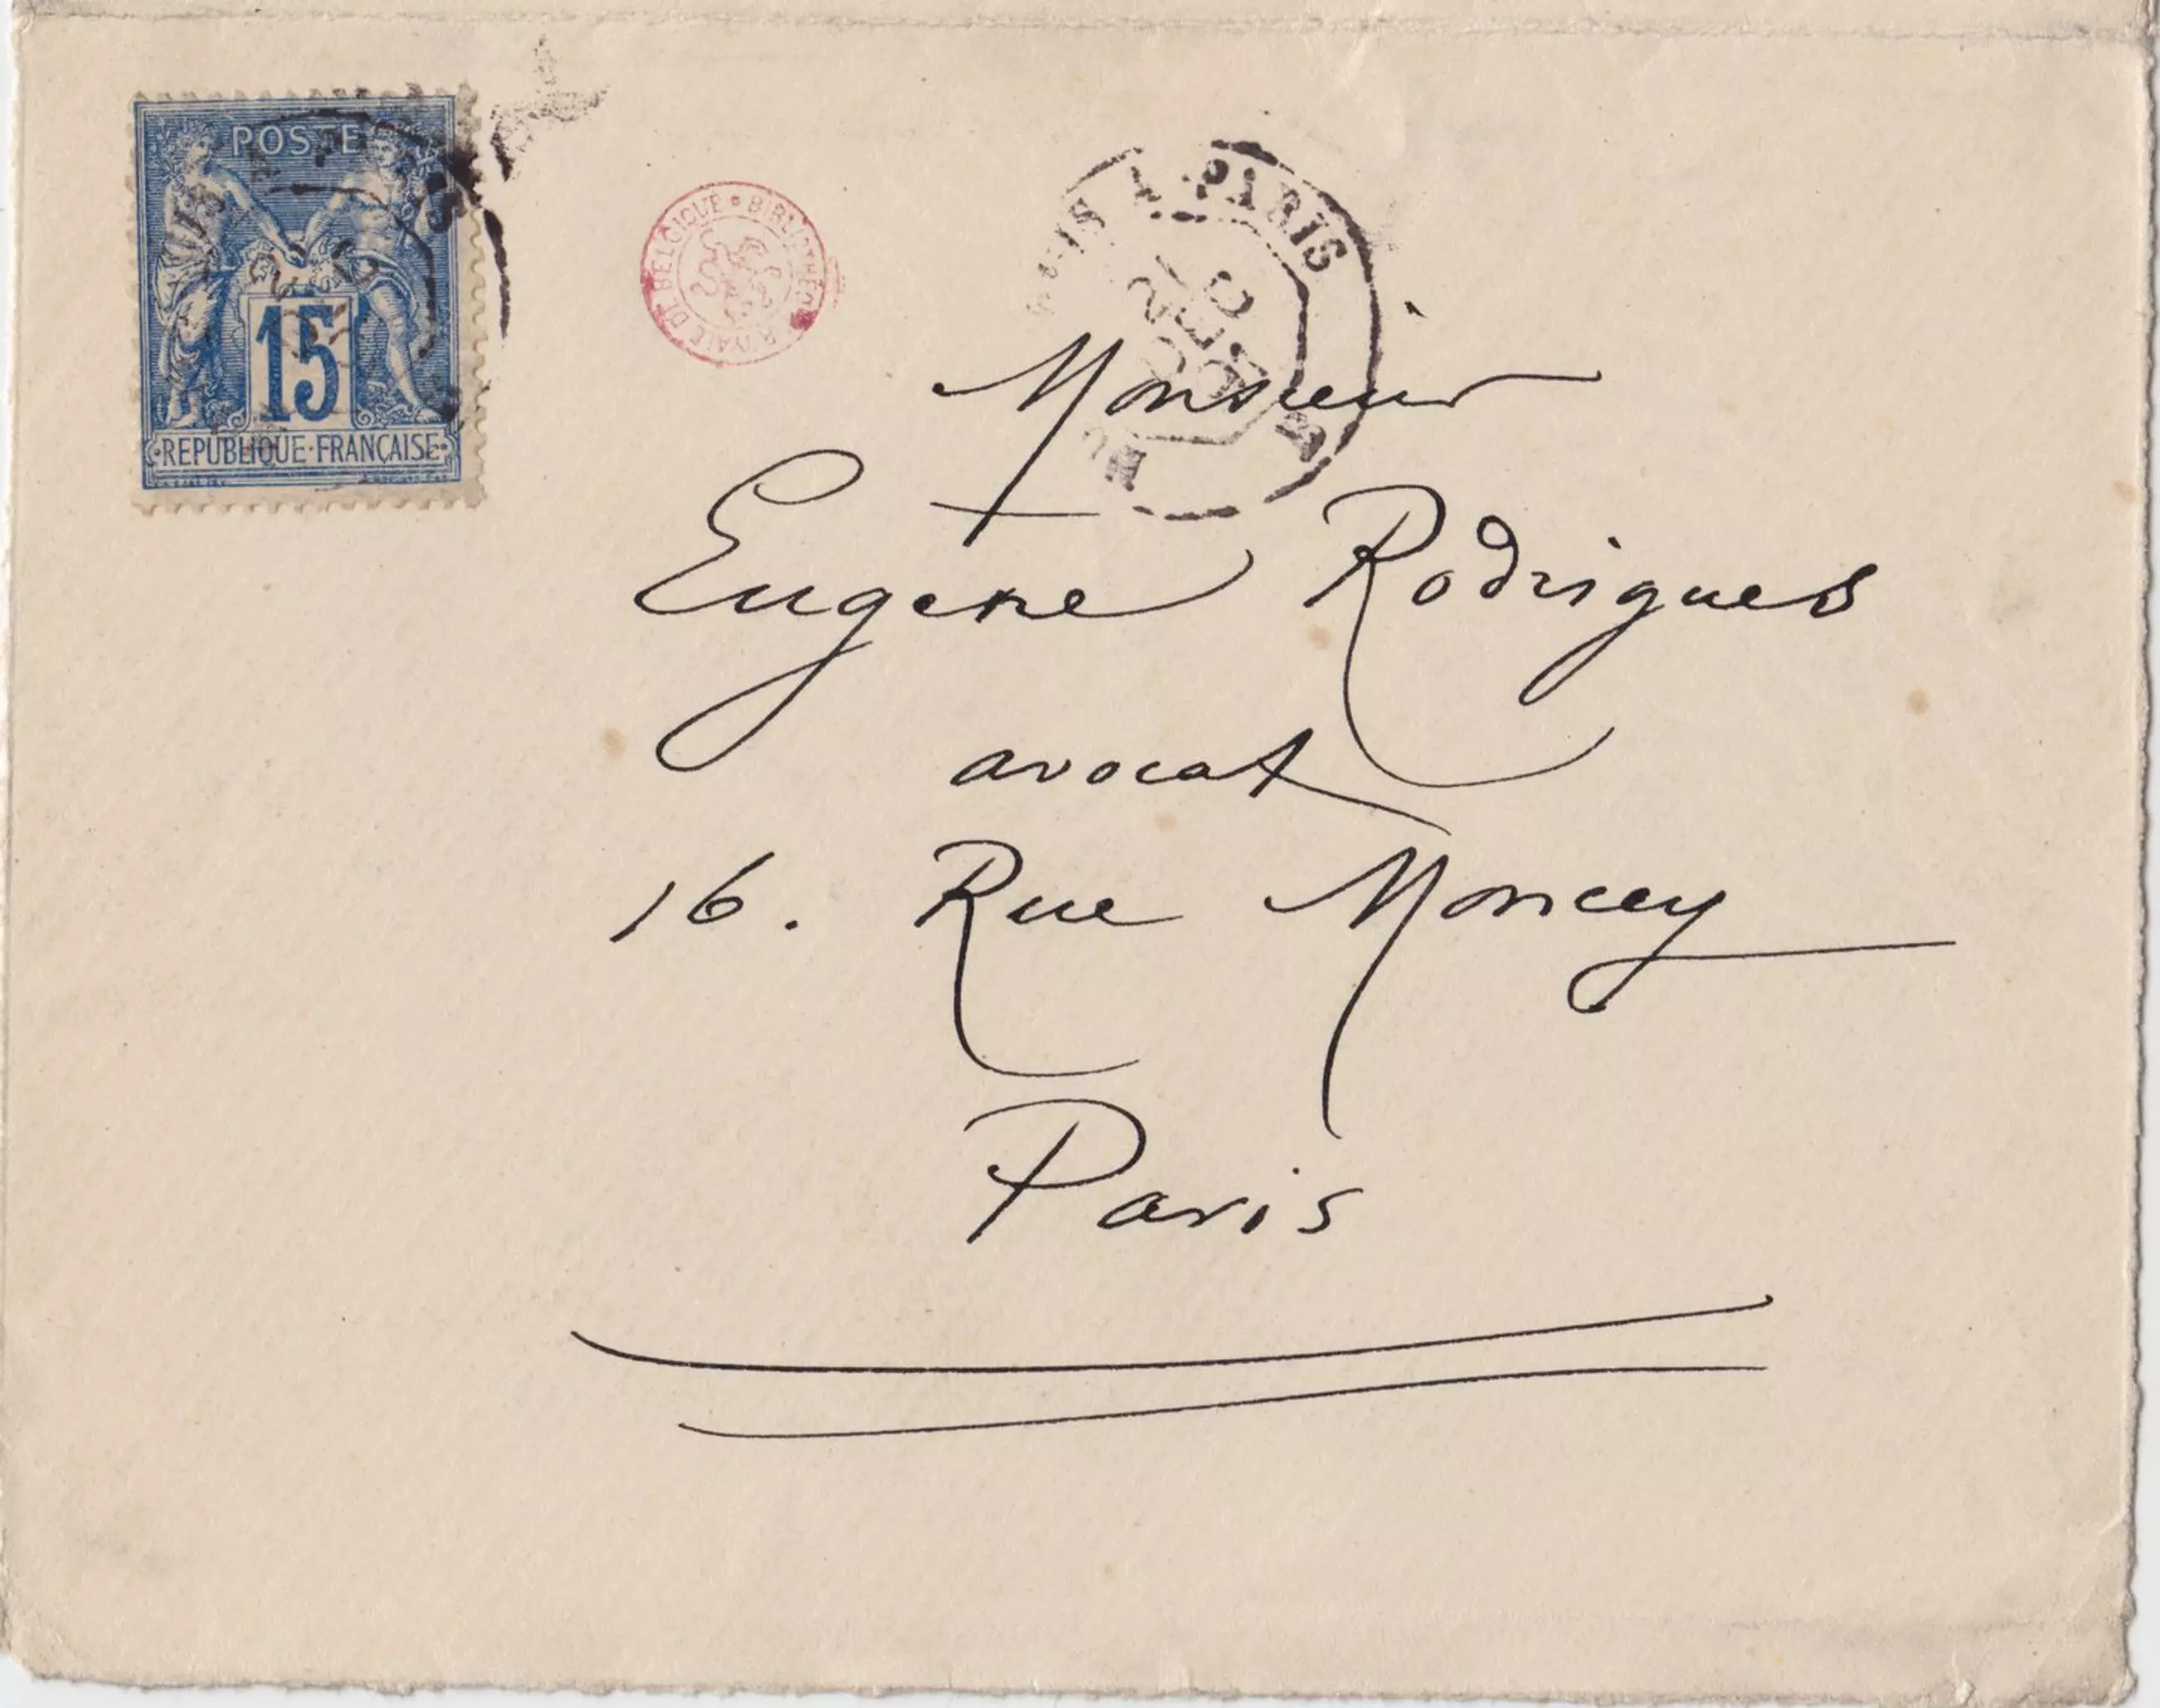 POSTE
15
REPUBLIQUE·FRANÇAISE
BIBLIOTHEQUE ROYALE DE BELGIQUE
A PARIS
21
DEC
Monsieur
Eugène Rodrigues
avocat
16. Rue Moncey
Paris